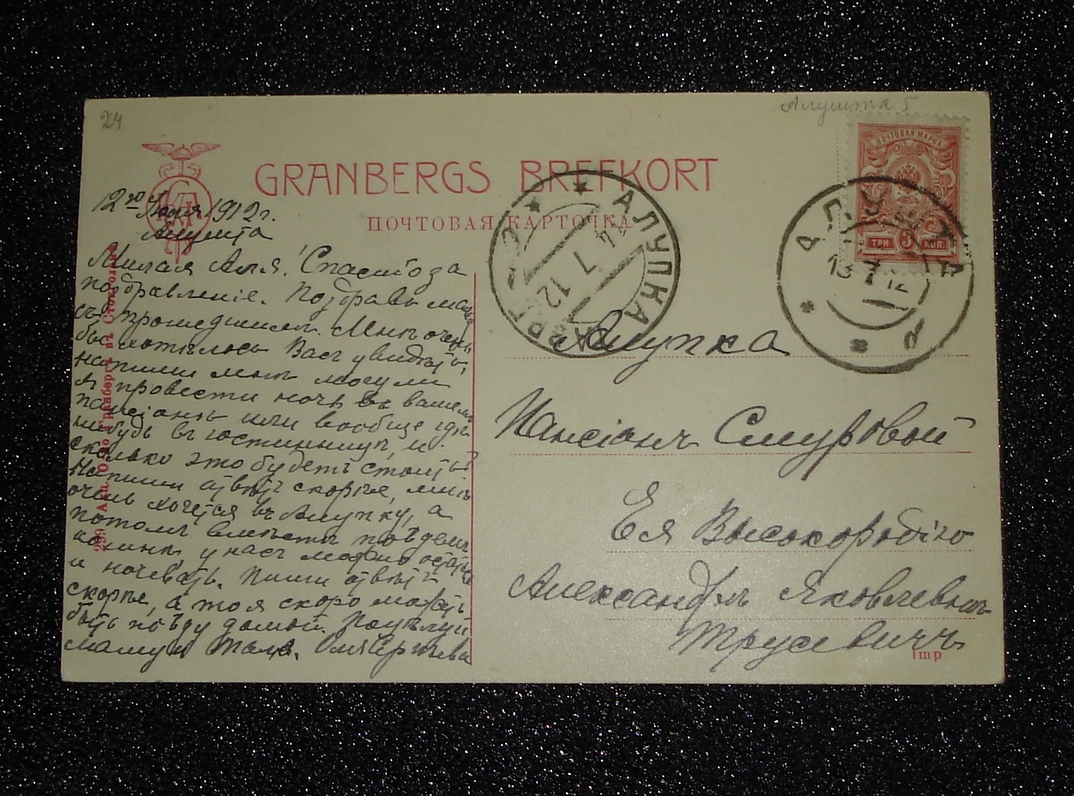 24
Алушта 5
ПОЧТОВАЯ МАРКА
ТРИ 3 КОП
GRANBERGS BREFKORT
ПОЧТОВАЯ КАРТОЧКА
АЛУПКА ТАВР.
14 7 12
АЛУШТА
13 7 12
12го Іюля 1912г.
Алушта
Милая Аля! Спасибо за
поздравленіе. Поздравь маму
съ прошедшимъ. Мнѣ очень
бы хотѣлось Васъ увидать,
напиши мнѣ могу ли
я провести ночь въ вашемъ
пансіонѣ или вообще гдѣ
нибудь въ гостинницѣ, и
сколько это будетъ стоить?
Напиши отвѣтъ скорѣе, мнѣ
очень хочется въ Алупку, а
потомъ вмѣстѣ поѣдемъ
у насъ можно
и ночевать. Пиши отвѣтъ
скорѣе, а то я скоро можетъ
быть поѣду домой. Поцѣлуй
маму и Таню. Оля Сергѣева
Алупка
Пансіонъ Смуровой
Ея Высокородію
Александрѣ Яковлевнѣ
Трусевичъ
Imp